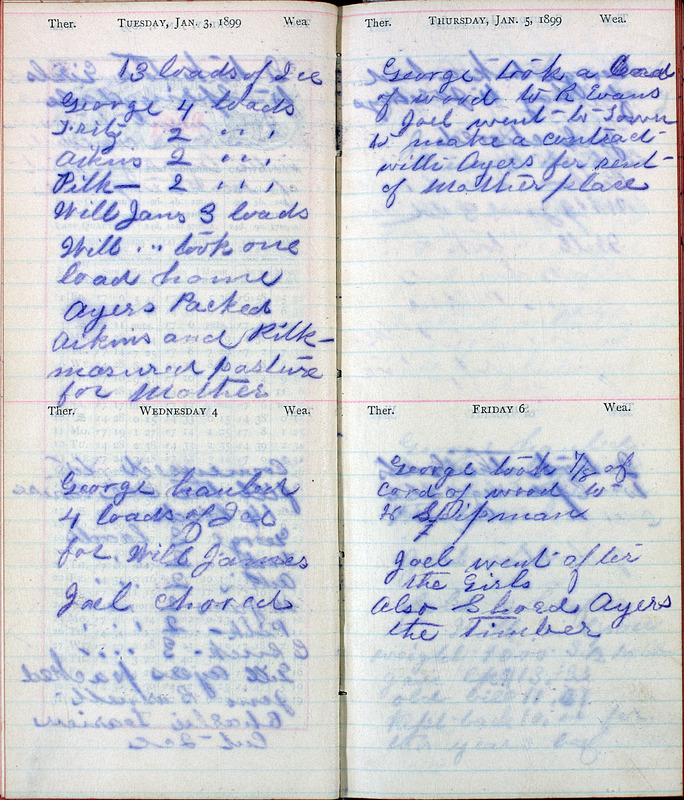 Ther. TUESDAY, JAN. 3, 1899 Wea.
13 loads of Ice
George 4 loads
Fritz 2 " " "
Aikins 2 " " "
Pilk— 2 " " "
Will Jans 3 loads
Will " " took one
load home
Ayers Packed
Aikins and Pilk—
masured pasture
for Mother
Ther. WEDNESDAY 4 Wea.
George hauled
4 loads of Ice
for Will James
Joel chored
Ther. THURSDAY, JAN. 5, 1899 Wea.
George took a Coard
of wood to R Evans
Joel went to Town
to make a contract
with Ayers for rent
of Mother place
Ther. FRIDAY 6 Wea.
George took 7/8 of
cord of wood to
H Sipman
Joel went after
the Girls
Also Shoed Ayers
the Timber